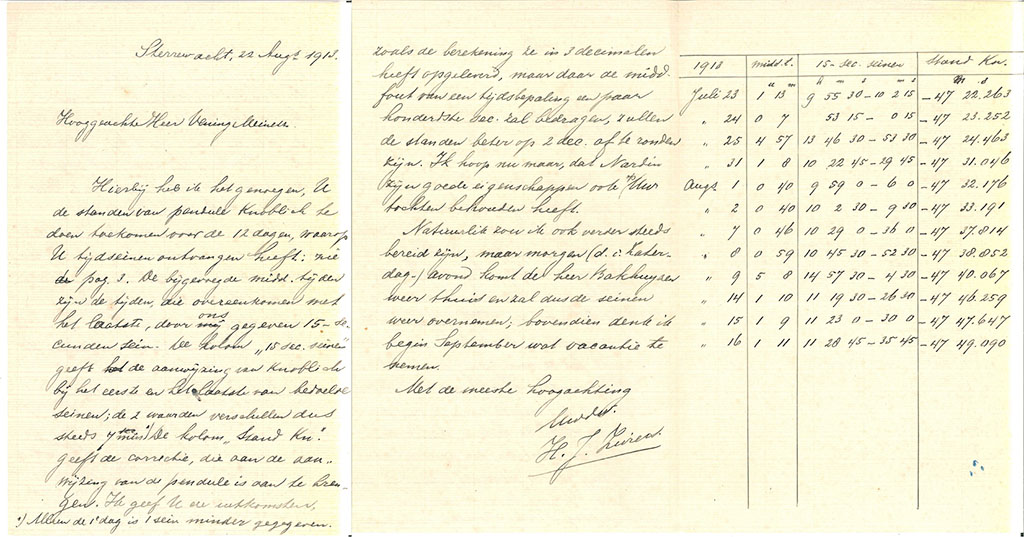 Sterrewacht, 22 Augs 1913.
Hooggeachte Heer Vening Meinesz.
Hierbij heb ik het genoegen, U
de standen van pendule Knoblich te
doen toekomen voor de 12 dagen, waarop
U tijdseinen ontvangen heeft: zie
de pag. 3. De bijgevoegde midd. tijden
zijn de tijden, die overeenkomen met
het laatste, door ons gegeven 15-se-
cunden sein. De kolom "15 sec. seinen"
geeft de aanwijzing van Knoblich
bij het eerste en het laatste van bedoelde
seinen; de 2 waarden verschillen dus
steeds 7 min. De kolom "Stand Kn."
geeft de correctie, die aan de aan-
wijzing van de pendule is aan te bren-
gen. Ik geef U de uitkomsten,
*) Alleen de 1e dag is 1 sein minder gegeven.
zooals de berekening ze in 3 decimalen
heeft opgeleverd, maar daar de midd.
fout van een tijdsbepaling een paar
honderdste sec. zal bedragen, zullen
de standen beter op 2 dec. af te ronden
zijn. Ik hoop nu maar, dat Nardin
zijn goede eigenschappen ook op Uw
tochten behouden heeft.
Natuurlijk zou ik ook verder steeds
bereid zijn, maar morgen (d.i. Zater-
dag-) avond komt de heer Bakhuyzen
weer thuis en zal dus de seinen
weer overnemen; bovendien denk ik
begin September wat vacantie te
nemen.
Met de meeste hoogachting
Uw dw.
H. J. Zwiers
1913 midd. t. 15-sec. seinen Stand Kn.
u m u m s m s m s
Juli 23 1 13 9 55 30 - 10 2 15 -47 22.263
" 24 0 7 53 15 - 0 15 -47 23.252
" 25 4 57 13 46 30 - 53 30 -47 24.463
" 31 1 8 10 22 45 - 29 45 -47 31.046
Augs 1 0 40 9 59 0 - 6 0 -47 32.176
" 2 0 40 10 2 30 - 9 30 -47 33.191
" 7 0 46 10 29 0 - 36 0 -47 37.814
" 8 0 59 10 45 30 - 52 30 -47 38.052
" 9 5 8 14 57 30 - 4 30 -47 40.067
" 14 1 10 11 19 30 - 26 30 -47 46.259
" 15 1 9 11 23 0 - 30 0 -47 47.647
" 16 1 11 11 28 45 - 35 45 -47 49.090